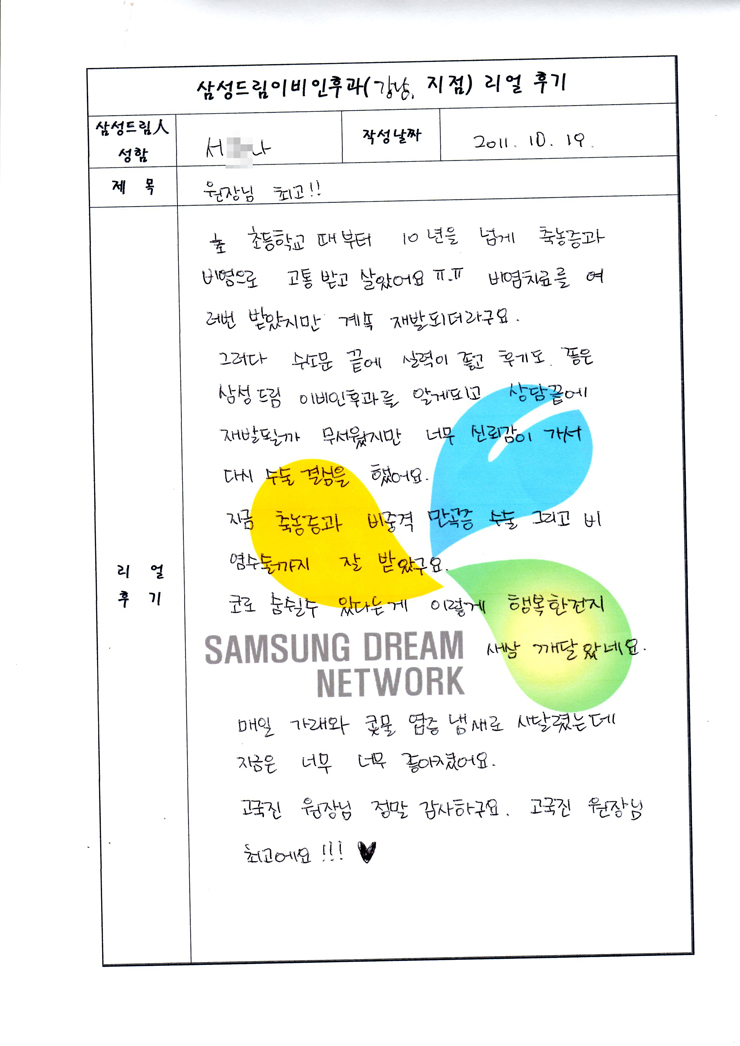 삼성드림이비인후과(강남, 지점) 리얼 후기
삼성드림人
성함
서 나
작성날짜
2011. 10. 19.
제 목
원장님 최고!!
리 얼
후 기
초등학교 때부터 10년을 넘게 축농증과
비염으로 고통 받고 살았어요 ㅠ.ㅠ 비염치료를 여
러번 받았지만 계속 재발되더라구요.
그러다 수소문 끝에 실력이 좋고 후기도 좋은
삼성드림 이비인후과를 알게되고 상담끝에
재발될까 무서웠지만 너무 신뢰감이 가서
다시 수술 결심을 했어요.
지금 축농증과 비중격 만곡증 수술 그리고 비
염수술까지 잘 받았구요.
코로 숨쉴수 있다는게 이렇게 행복한건지
새삼 깨달았네요.
SAMSUNG DREAM
NETWORK
매일 가래와 콧물 염증 냄새로 시달렸는데
지금은 너무 너무 좋아졌어요.
고국진 원장님 정말 감사하구요. 고국진 원장님
최고에요!!! ♥